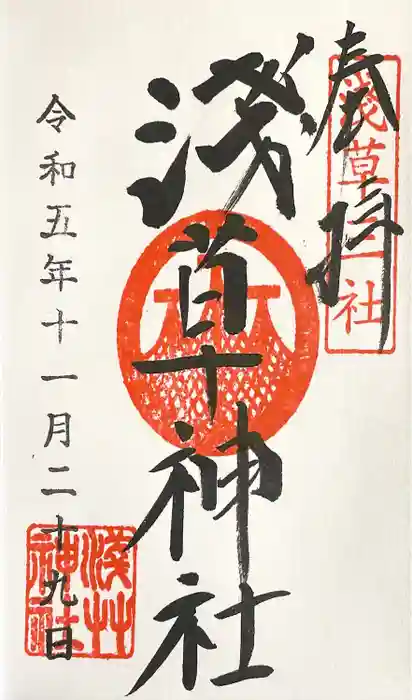 奉拝
浅草三社
淺草神社
令和五年十一月二十九日
淺草神社